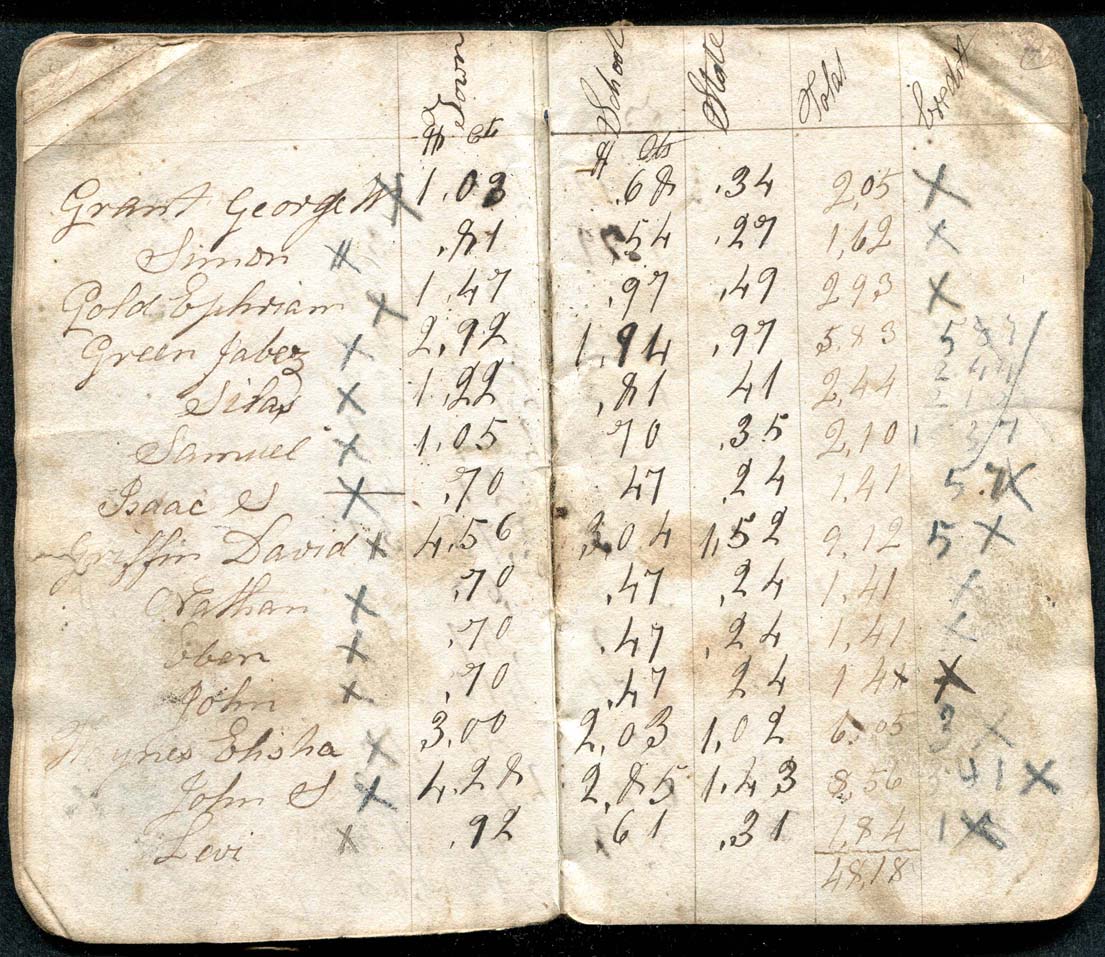 Town School State Total Credit
$ Cts $ Cts
Grant George W X 1.03 .68 .34 2,05 X
Simon X .81 .54 .27 1,62 X
Gold Ephriam X 1.47 .97 .49 2 93 X
Green Jabez X 2,92 1,94 ,97 5.83 5 87
Silas X 1,22 ,81 41 2,44 2 44
Samuel X 1,05 70 .35 2,10 1 37
Isaac S X .70 47 .24 1,41 5.7X
Griffin David X 4,56 3,04 1,52 9,12 5 X
Nathan X ,70 .47 ,24 1,41 X
Eben X ,70 .47 ,24 1,41
John X ,70 ,47 24 1 4 X
Hynes Elisha X 3,00 2,03 1,02 6,05 3 X
John S X 4,28 2,85 1,43 8,56 3 41 X
Levi X .92 ,61 .31 1,84 1 X
48,18